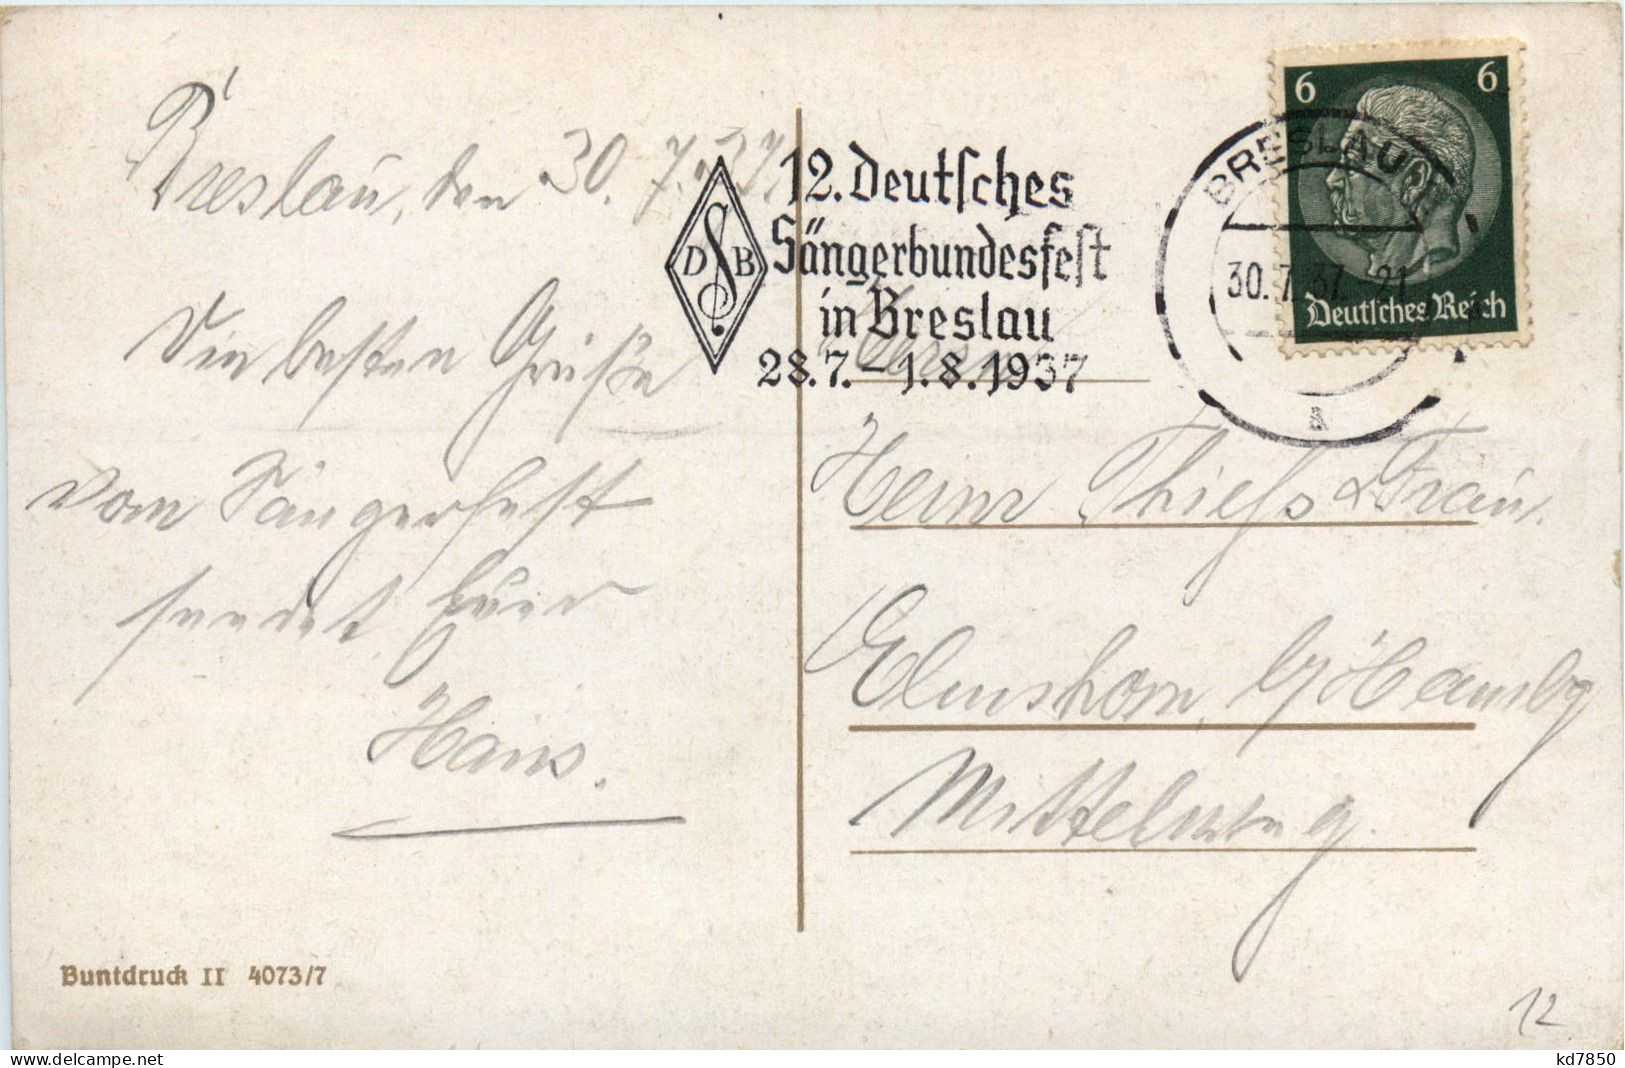 Breslau, den 30. 7. 37.
Die besten Grüße
vom Sängerfest
sendet Euer
Hans.
Buntdruck II 4073/7
DSB
12. Deutsches
Sängerbundesfest
in Breslau
28.7. – 1.8.1937
BRESLAU
30.7.37.-21
a
6 6
Deutsches Reich
Heinr Thiess & Frau.
Elmshorn, b/Hambg
Mittelweg.
12
delcampe.net
kd7850